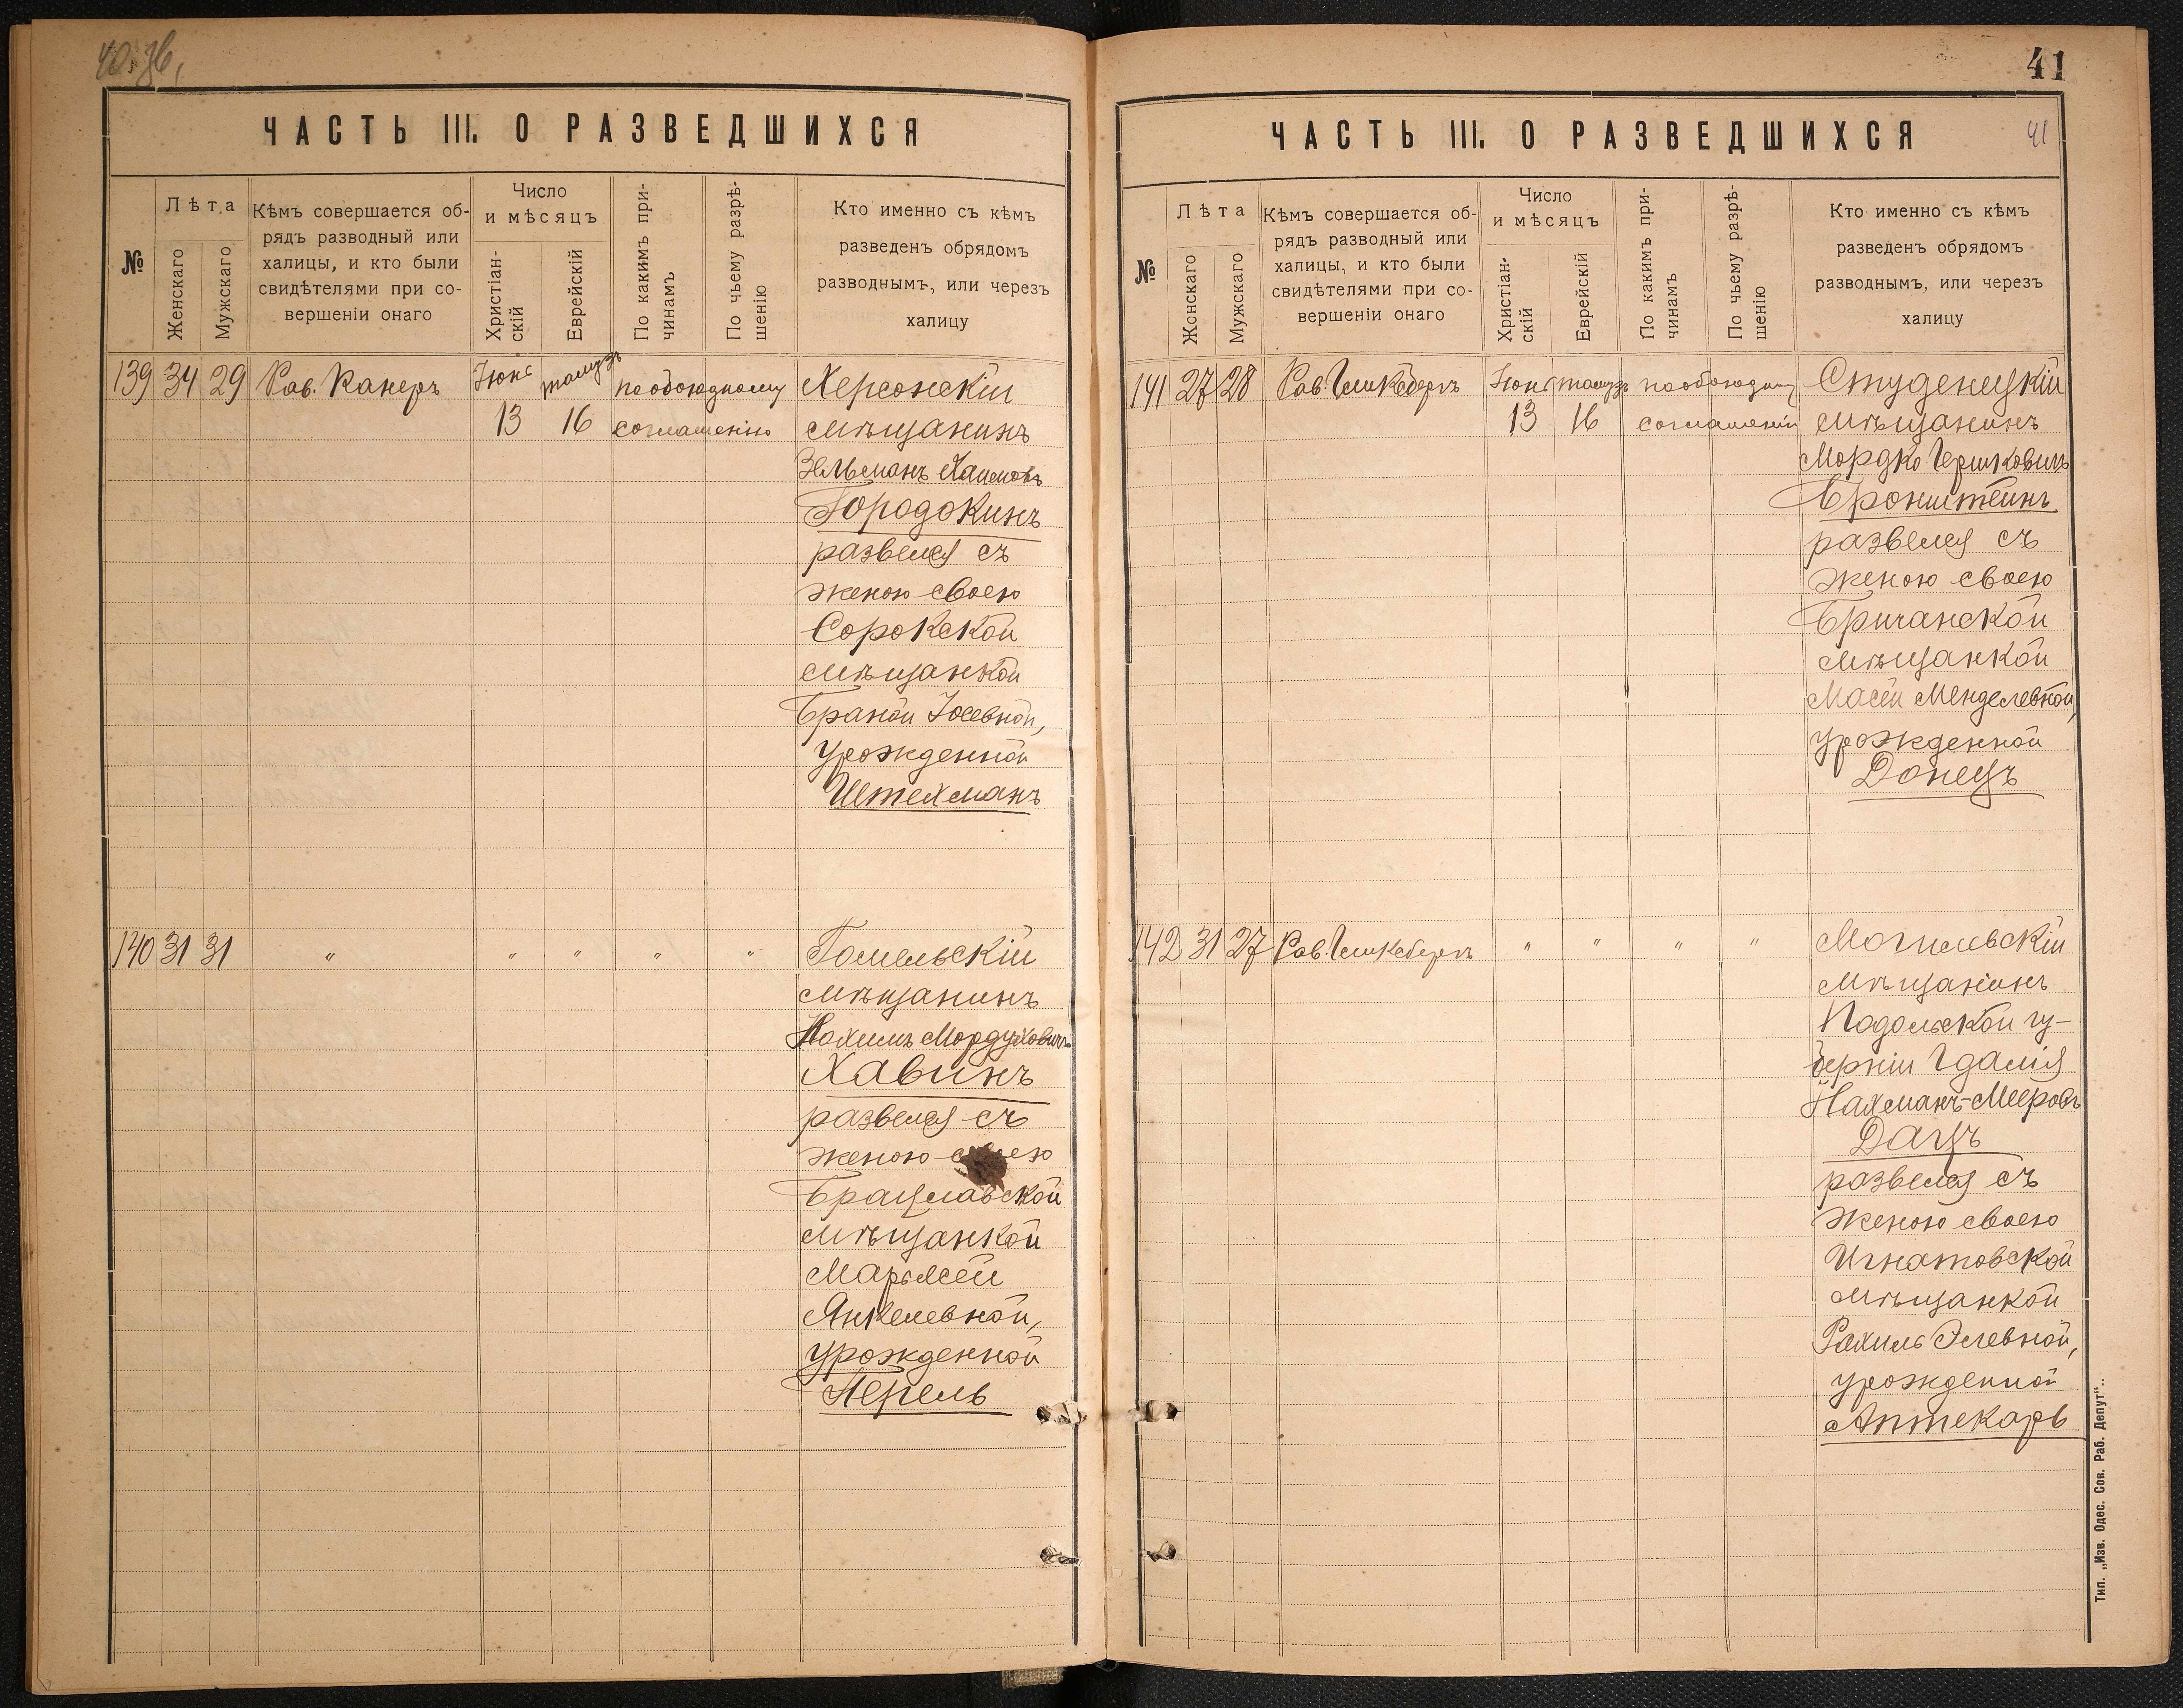 40 зв.
ЧАСТЬ III. О РАЗВЕДШИХСЯ
№
Лѣта
Женскаго
Мужскаго
Кѣмъ совершается об-
рядъ разводный или
халицы, и кто были
свидѣтелями при со-
вершеніи онаго
Число
и мѣсяцъ
Христіан-
скій
Еврейскій
По какимъ при-
чинамъ
По чьему разрѣ-
шенію
Кто именно съ кѣмъ
разведенъ обрядомъ
разводнымъ, или черезъ
халицу
139 34 29 Рав. Канеръ Іюнь тамузъ по обоюдному Херсонскій
13 16 соглашенію мѣщанинъ
Зельманъ Хаимовъ
Городокинъ
развелся съ
женою своею
Сорокской
мѣщанкой
Браной Іосевной,
урожденной
Штехманъ
140 31 31 " " " " " Гомельскій
мѣщанинъ
Нохимъ Мордуховичъ
Хавинъ
развелся съ
женою своею
Брацлавской
мѣщанкой
Марьясей
Янкелевной,
урожденной
Перель
41
ЧАСТЬ III. О РАЗВЕДШИХСЯ
41
№
Лѣта
Жонскаго
Мужскаго
Кѣмъ совершается об-
рядъ разводный или
халицы, и кто были
свидѣтелями при со-
вершеніи онаго
Число
и мѣсяцъ
Христіан-
скій
Еврейскій
По какимъ при-
чинамъ
По чьему разрѣ-
шенію
Кто именно съ кѣмъ
разведенъ обрядомъ
разводнымъ, или черезъ
халицу
141 27 28 Рав. Гинкбергъ Іюнь тамузъ по обоюдному Студенецкій
13 16 соглашенію мѣщанинъ
Мордко Гершковичъ
Бронштейнъ
развелся съ
женою своею
Бричанской
мѣщанкой
Масей Менделевной,
урожденной
Донецъ
142 31 27 Рав. " " " " Могилевскій
мѣщанинъ
Подольской гу-
берніи Гдалія
Нахманъ-Мееровъ
Дацъ
развелся съ
женою своею
Игнатовской
мѣщанкой
Рахиль Элевной,
урожденной
Аптекарь
Тип. „Изв. Одес. Сов. Раб. Депут“.